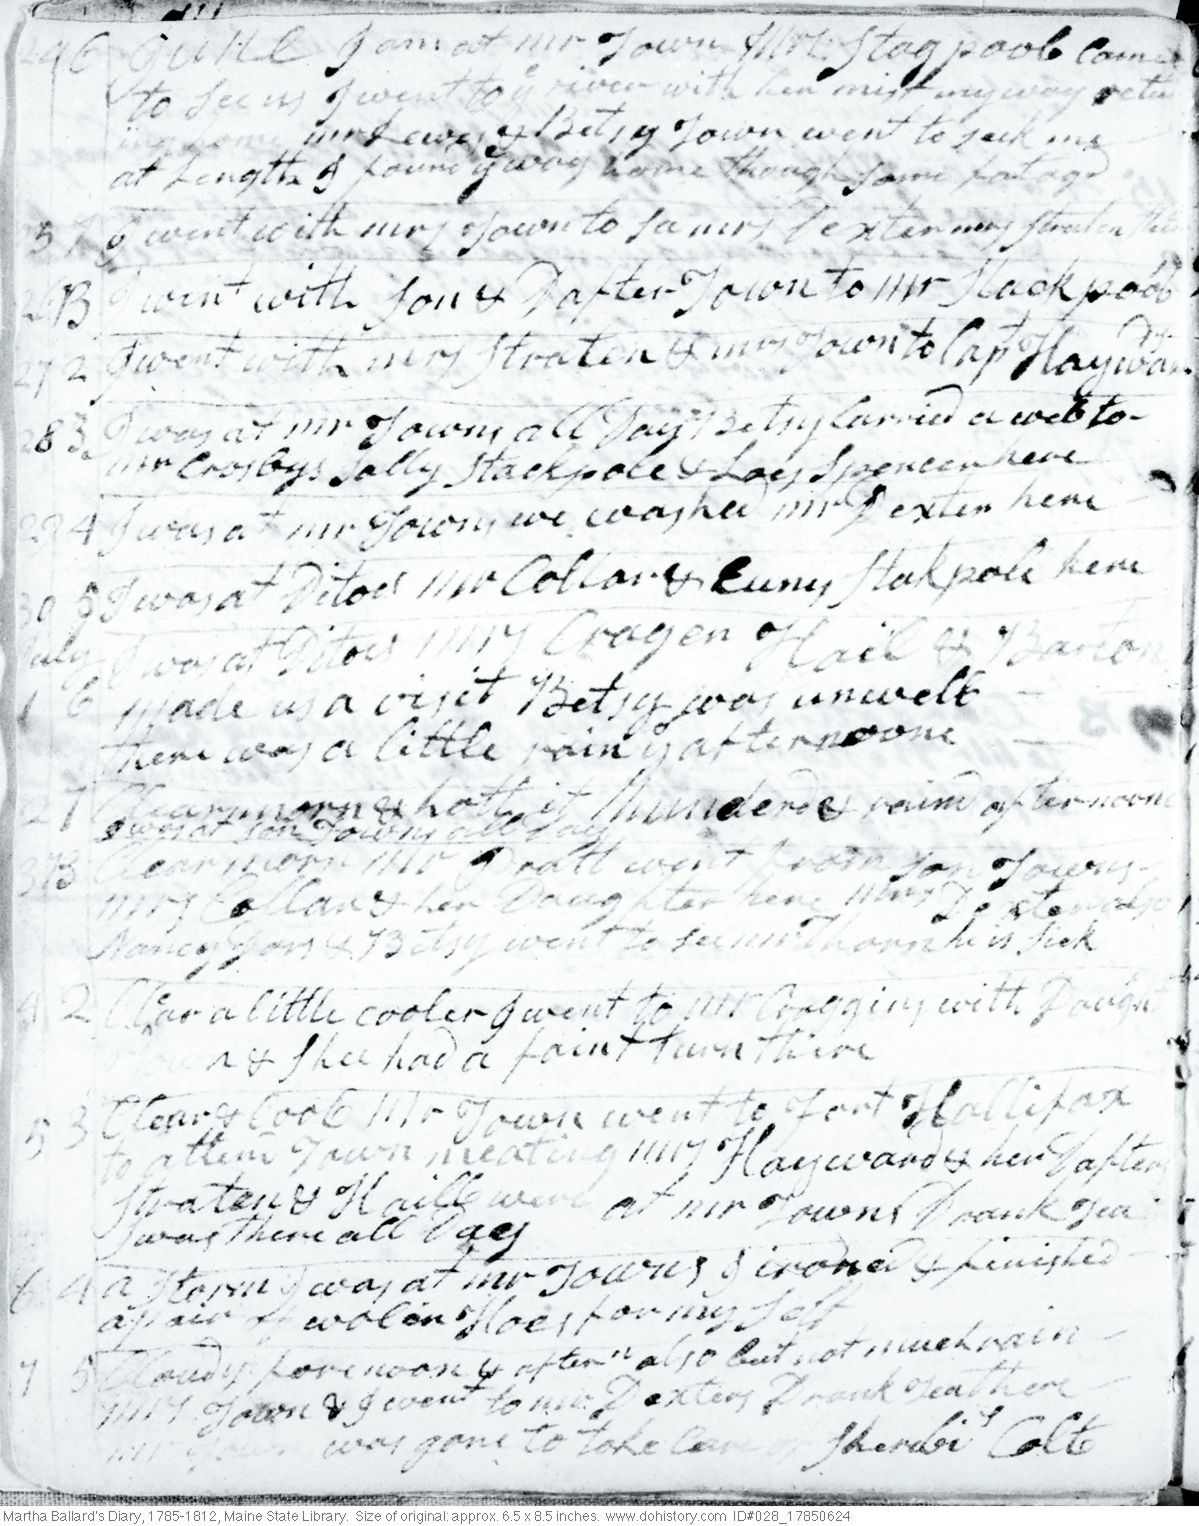 24 6 June I am at mr Town Mrs Stagpool Came
to See us I went to ye river with her mist my way retu
ing home mr Lewis & Betsy Town went to seek me
at Length I found ye way home though some fatagd
5 7 I went with mrs Town to Se mrs Dexter mrs Straten there
26 B I went with Son & Dafter Town to mr Stackpool
27 2 I went with mrs Straten & mrs Town to Capt Haywards
28 3 I was at mr Towns all Day Betsy Carried a web to
mr Crosbys Sally Stackpole & Loes Spencer here
29 4 I was at mr Towns we washed mr Dexter here
30 5 I was at Ditoes mr Collar & Euny Stakpole here
July I was at Ditoes mrs Cragen Hail & Barton
1 6 made us a visit Betsy was unwell
there was a little rain ye afternoone
2 7 Clear morn & hott it thunderd & raind afternoon
I was at Son Towns all Day
3 B Clear morn mr Pratt went from Son Towns
mrs Collar & her Daughter here mrs Dexter also
Nancy & Betsy went to see mr Thorn he is Sick
4 2 Clear a little cooler I went to mr Coggins with Daught
Town & Shee had a faint turn there
5 3 Clear & Cool Mr Town went to Fort Hallifax
to attend Town meating mrs Hayward & her Dafters
Straten & Haill were at mr Towns Drank Tea
I was there all Day
6 4 a Storm I was at mr Towns I ironed & finished
a pair of wolin Hoes for my Self
7 5 Cloudy forenoon & aftern also but not much rain
mrs Town & I went to mr Dexters Drank Tea there
mr was gone to take Care of Colt
Martha Ballard's Diary, 1785-1812, Maine State Library. Size of original: approx. 6.5 x 8.5 inches. www.dohistory.com ID#028_17850624